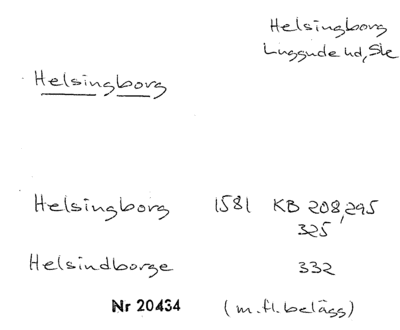 Helsingborg
Luggude hd, Skе
Helsingborg
Helsingborg 1581 KB 208, 295
325
Helsindborge 332
Nr 20434 (m.fl.belägg)